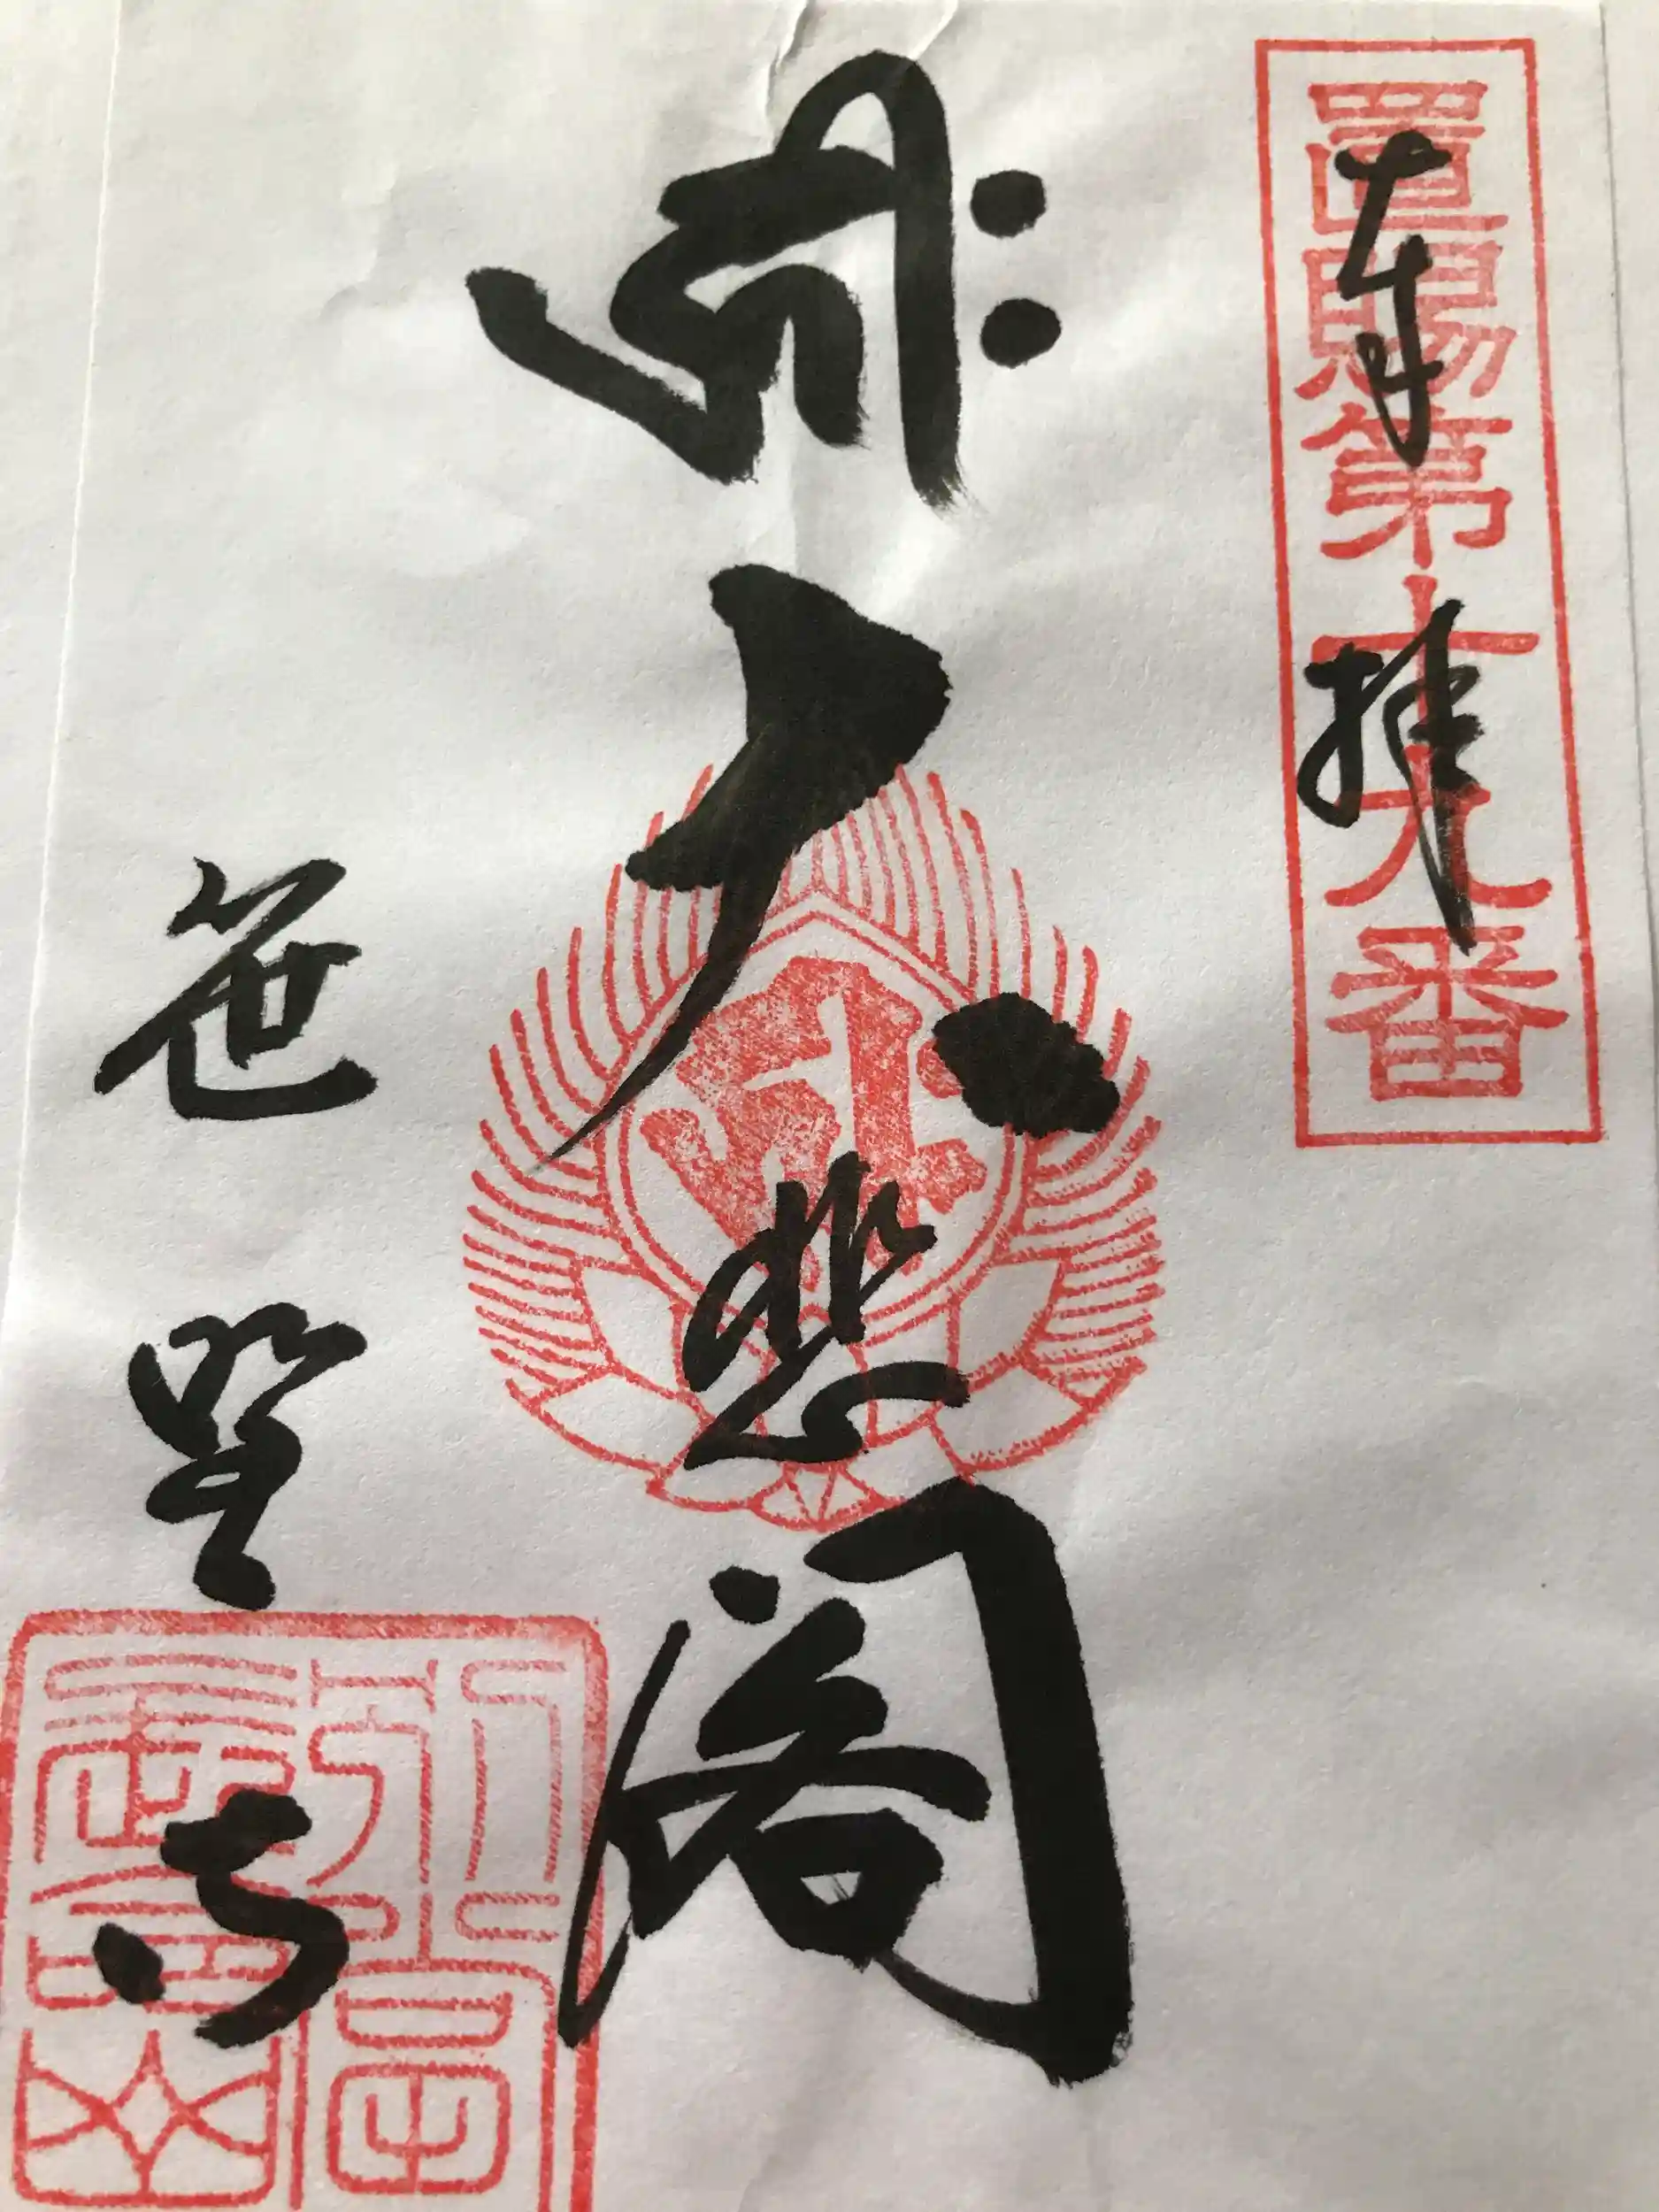 置賜第十九番
奉拝
大悲閣
笹野寺